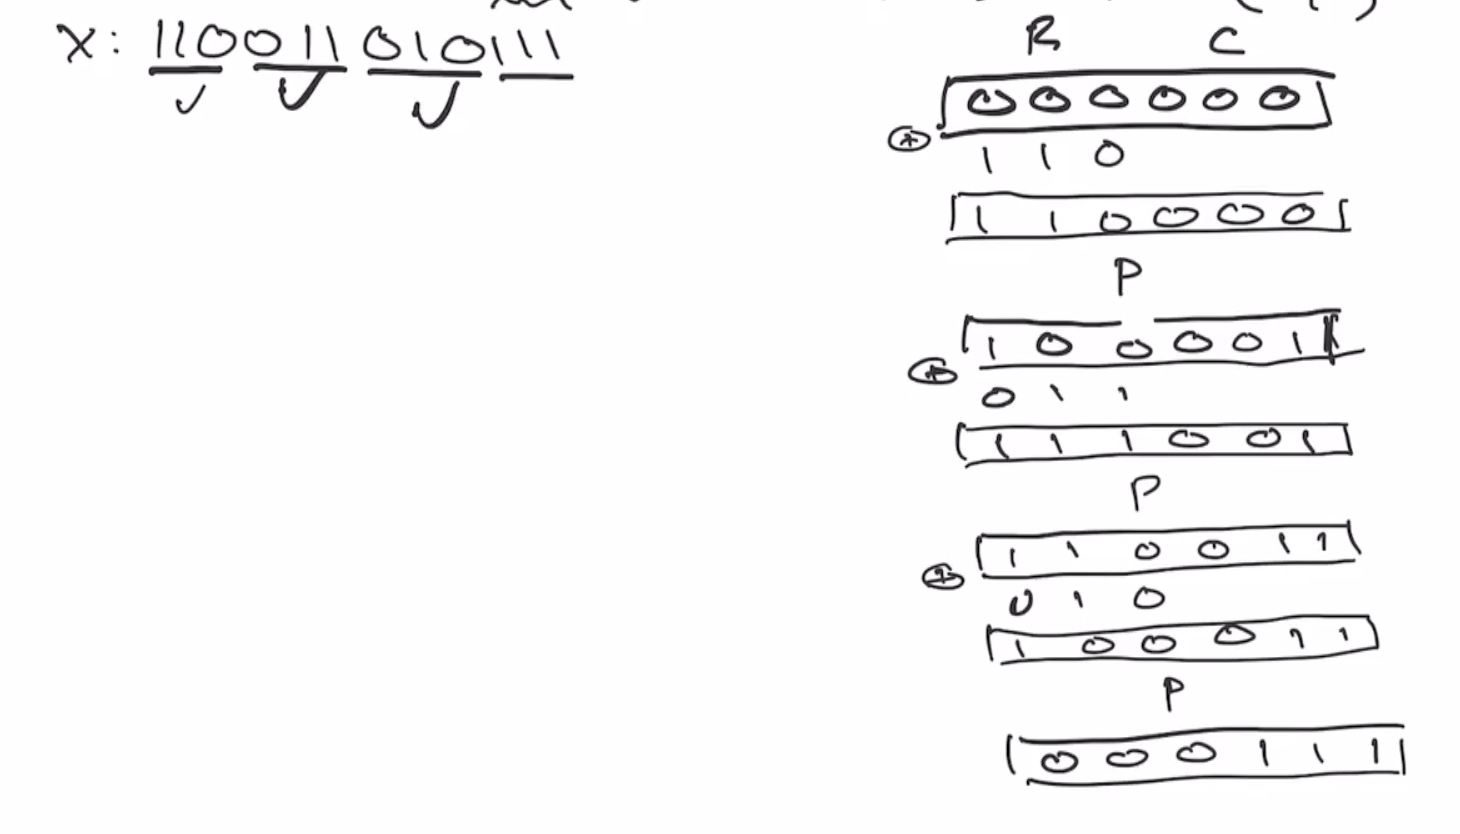 X: 110011010111
R C
000000
⊕
110
110000
P
100001
⊕
011
111001
P
110011
⊕
010
100011
P
000111